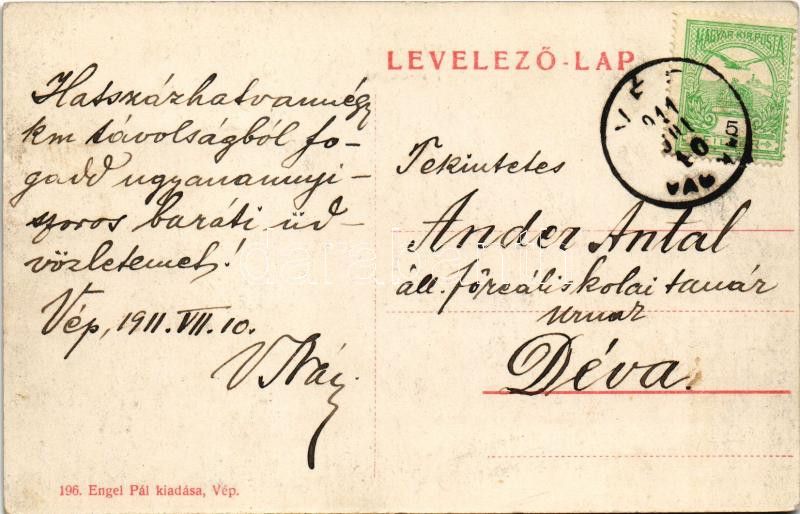 LEVELEZŐ-LAP
MAGYAR KIR. POSTA
5
Hatszázhatvannégy
km távolságból fo-
gadd ugyanannyi-
szoros baráti üd-
vözletemet!
Vép, 1911. VII. 10.
Tekintetes
Ander Antal
áll. főreáliskolai tanár
urnak
Déva.
196. Engel Pál kiadása, Vép.